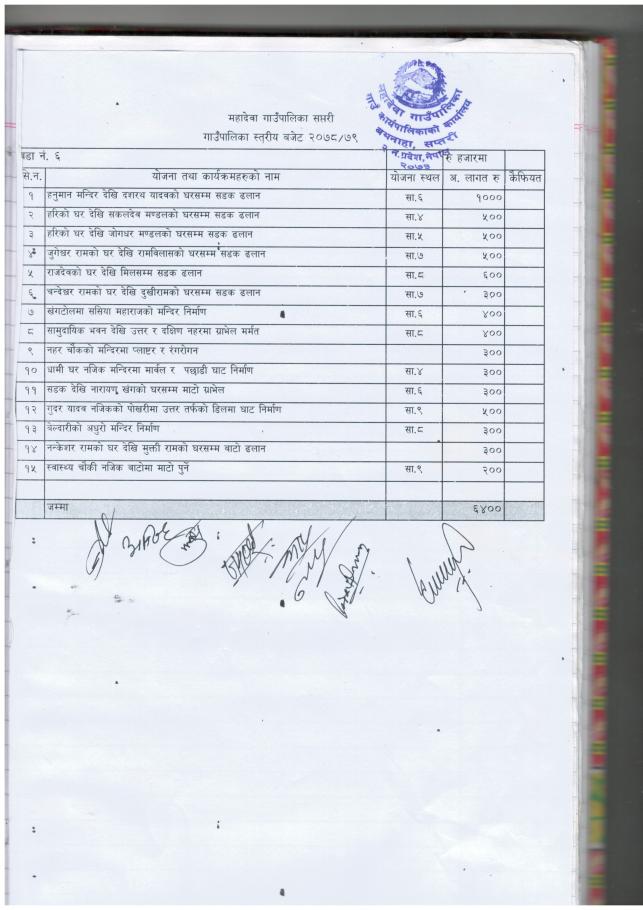 महादेवा गाउँपालिका सप्तरी
गाउँपालिका स्तरीय बजेट २०७८/७९
महादेवा गाउँपालिका
गाउँ कार्यपालिकाको कार्यालय
बथनाहा, सप्तरी
२ नं. प्रदेश, नेपाल
२०७३
वडा नं. ६ रु हजारमा
से.न. योजना तथा कार्यक्रमहरुको नाम योजना स्थल अ. लागत रु कैफियत
१ हनुमान मन्दिर देखि दशरथ यादवको घरसम्म सडक ढलान सा.६ १०००
२ हरिको घर देखि सकलदेव मण्डलको घरसम्म सडक ढलान सा.४ ५००
३ हरिको घर देखि जोगधर मण्डलको घरसम्म सडक ढलान सा.५ ५००
४ जुगेश्वर रामको घर देखि रामविलासको घरसम्म सडक ढलान सा.७ ५००
५ राजदेवको घर देखि मिलसम्म सडक ढलान सा.८ ६००
६ चन्देश्वर रामको घर देखि दुखीरामको घरसम्म सडक ढलान सा.७ ३००
७ खंगटोलमा ससिया महाराजको मन्दिर निर्माण सा.६ ४००
८ सामुदायिक भवन देखि उत्तर र दक्षिण नहरमा ग्राभेल मर्मत सा.८ ४००
९ नहर चौकको मन्दिरमा प्लाष्टर र रंगरोगन ३००
१० धामी घर नजिक मन्दिरमा मार्वल र पछाडी घाट निर्माण सा.४ ३००
११ सडक देखि नारायण खंगको घरसम्म माटो ग्राभेल सा.६ ३००
१२ गुदर यादव नजिकको पोखरीमा उत्तर तर्फको डिलमा घाट निर्माण सा.९ ५००
१३ वेल्दारीको अधुरो मन्दिर निर्माण सा.८ ३००
१४ नन्केशर रामको घर देखि मुक्ती रामको घरसम्म बाटो ढलान ३००
१५ स्वास्थ्य चौकी नजिक बाटोमा माटो पुर्ने सा.९ २००
जम्मा ६४००